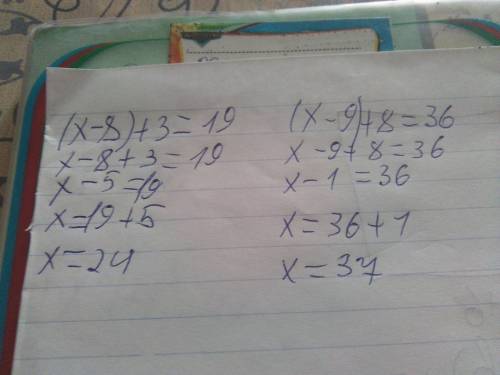 (x-8)+3=19
x-8+3=19
x-5=19
x=19+5
x=24
(x-9)+8=36
x-9+8=36
x-1=36
x=36+1
x=37